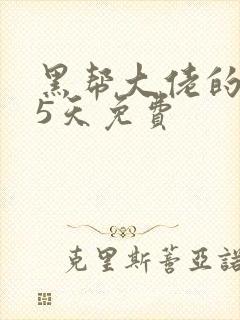 黑帮大佬的
5天免费
克里斯蒂亚諾